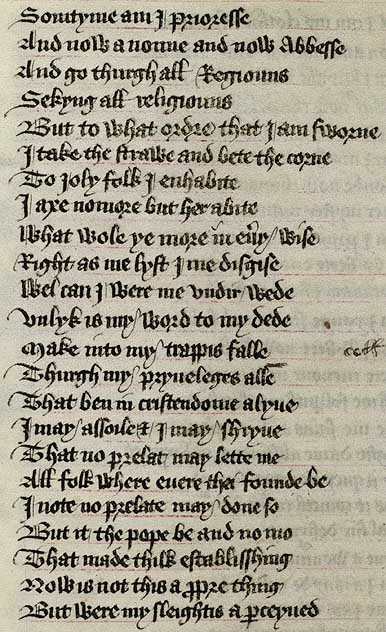 Somtyme am I prioresse
And now a nonne and now Abbesse
And go thurgh all Regiouns
Sekyng all religiouns
But to what ordre that I am sworne
I take the strawe and bete the corne
To Joly folk I enhabite
I axe nomore but her abite
What wole ye more in euery wise
Right as me lyst I me disgise
Wel can I were me vndir wede
Vnlyk is my word to my dede
Make into my trappis falle
Thurgh my pryueleges alle
That ben in cristendome alyue
I may assoile & I may shryue
That no prelat may lette me
All folk where euere thei founde be
I note no prelate may done so
But it the pope be and no mo
That made thilk establisshing
Now is not this a propre thing
But were my sleightis aperceyued